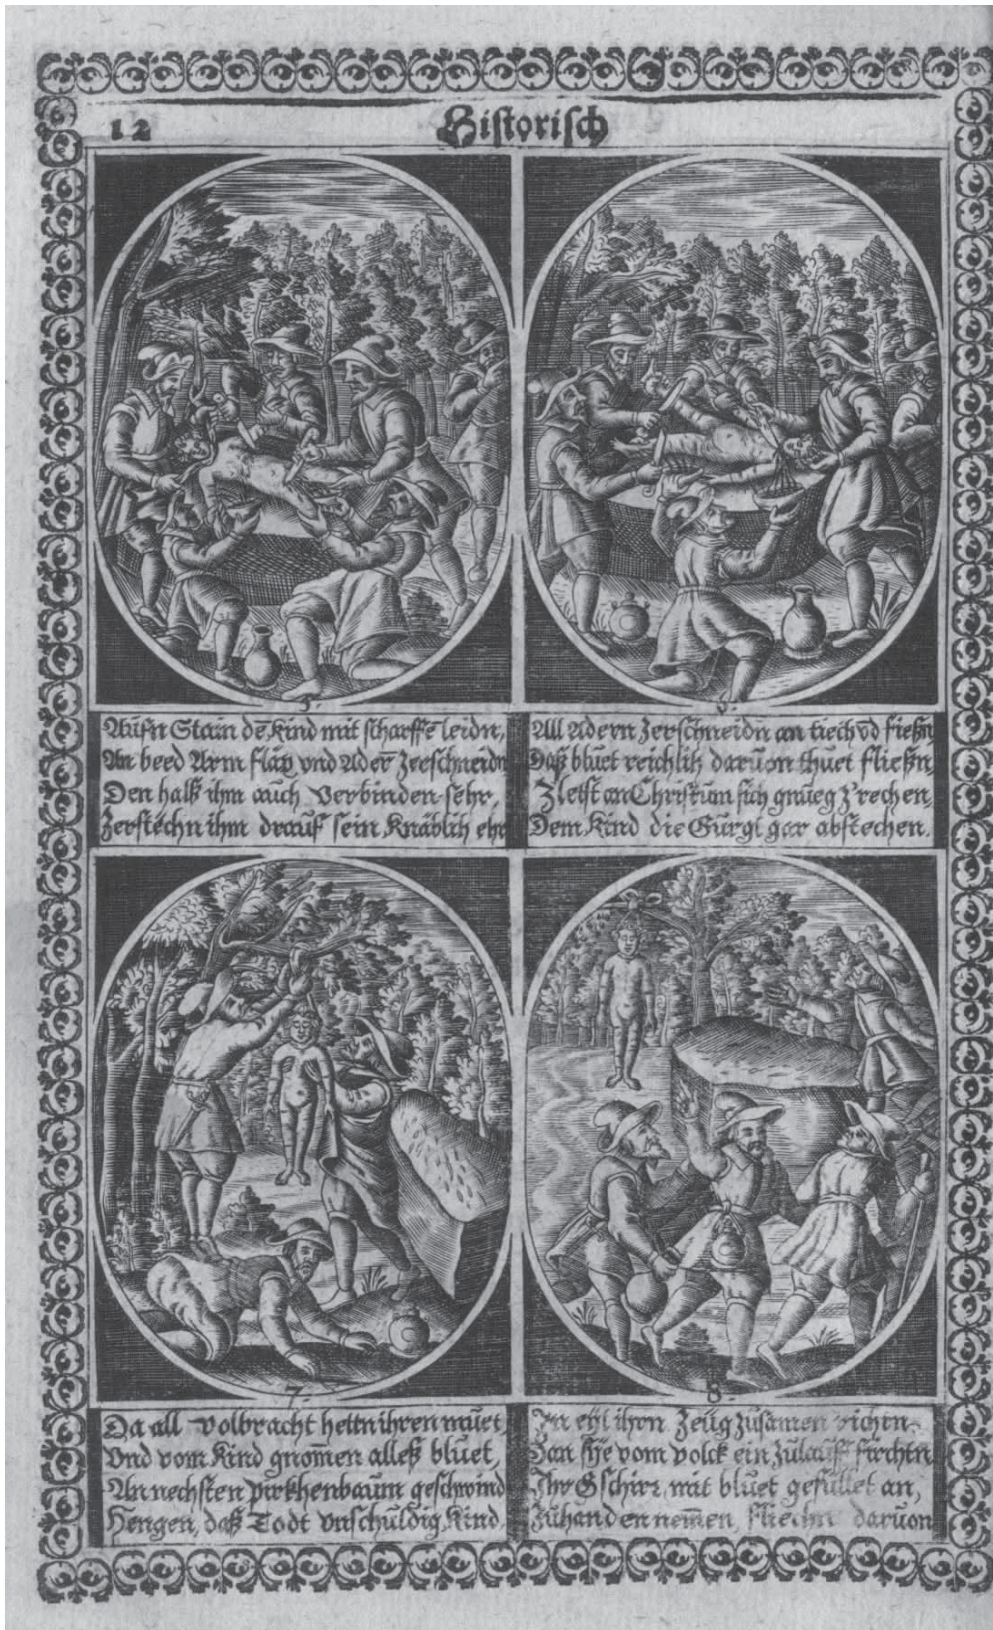 12
Historisch
5.
Aufn Stain dē Kind mit scharffē leidn,
An beed Arm flax vnd Ader Zerschneidn
Den halß ihm auch Verbinden sehr,
Zerstechn ihm drauf sein Knäblich ehr
6.
All Adern Zerschneidn an tiech vd fießn
Daß bluet reichlih daruon thuet fließn,
Zletst an Christum sich gnueg Z'rechen,
Dem Kind die Gurgl gar abstechen.
7.
Da all volbracht hettn ihren muet,
Vnd vom Kind gnom̄en alleß bluet,
An nechsten pirkhenbaum geschwind
Hengen, daß Todt vnschuldig Kind
8.
In eyl ihrn Zeug Zusamen richtn
Dan sye vom volck ein Zulauff fürchtn
Ihr Gschirz mit bluet gefüllet an,
Zuhanden nem̄en, fliechn daruon